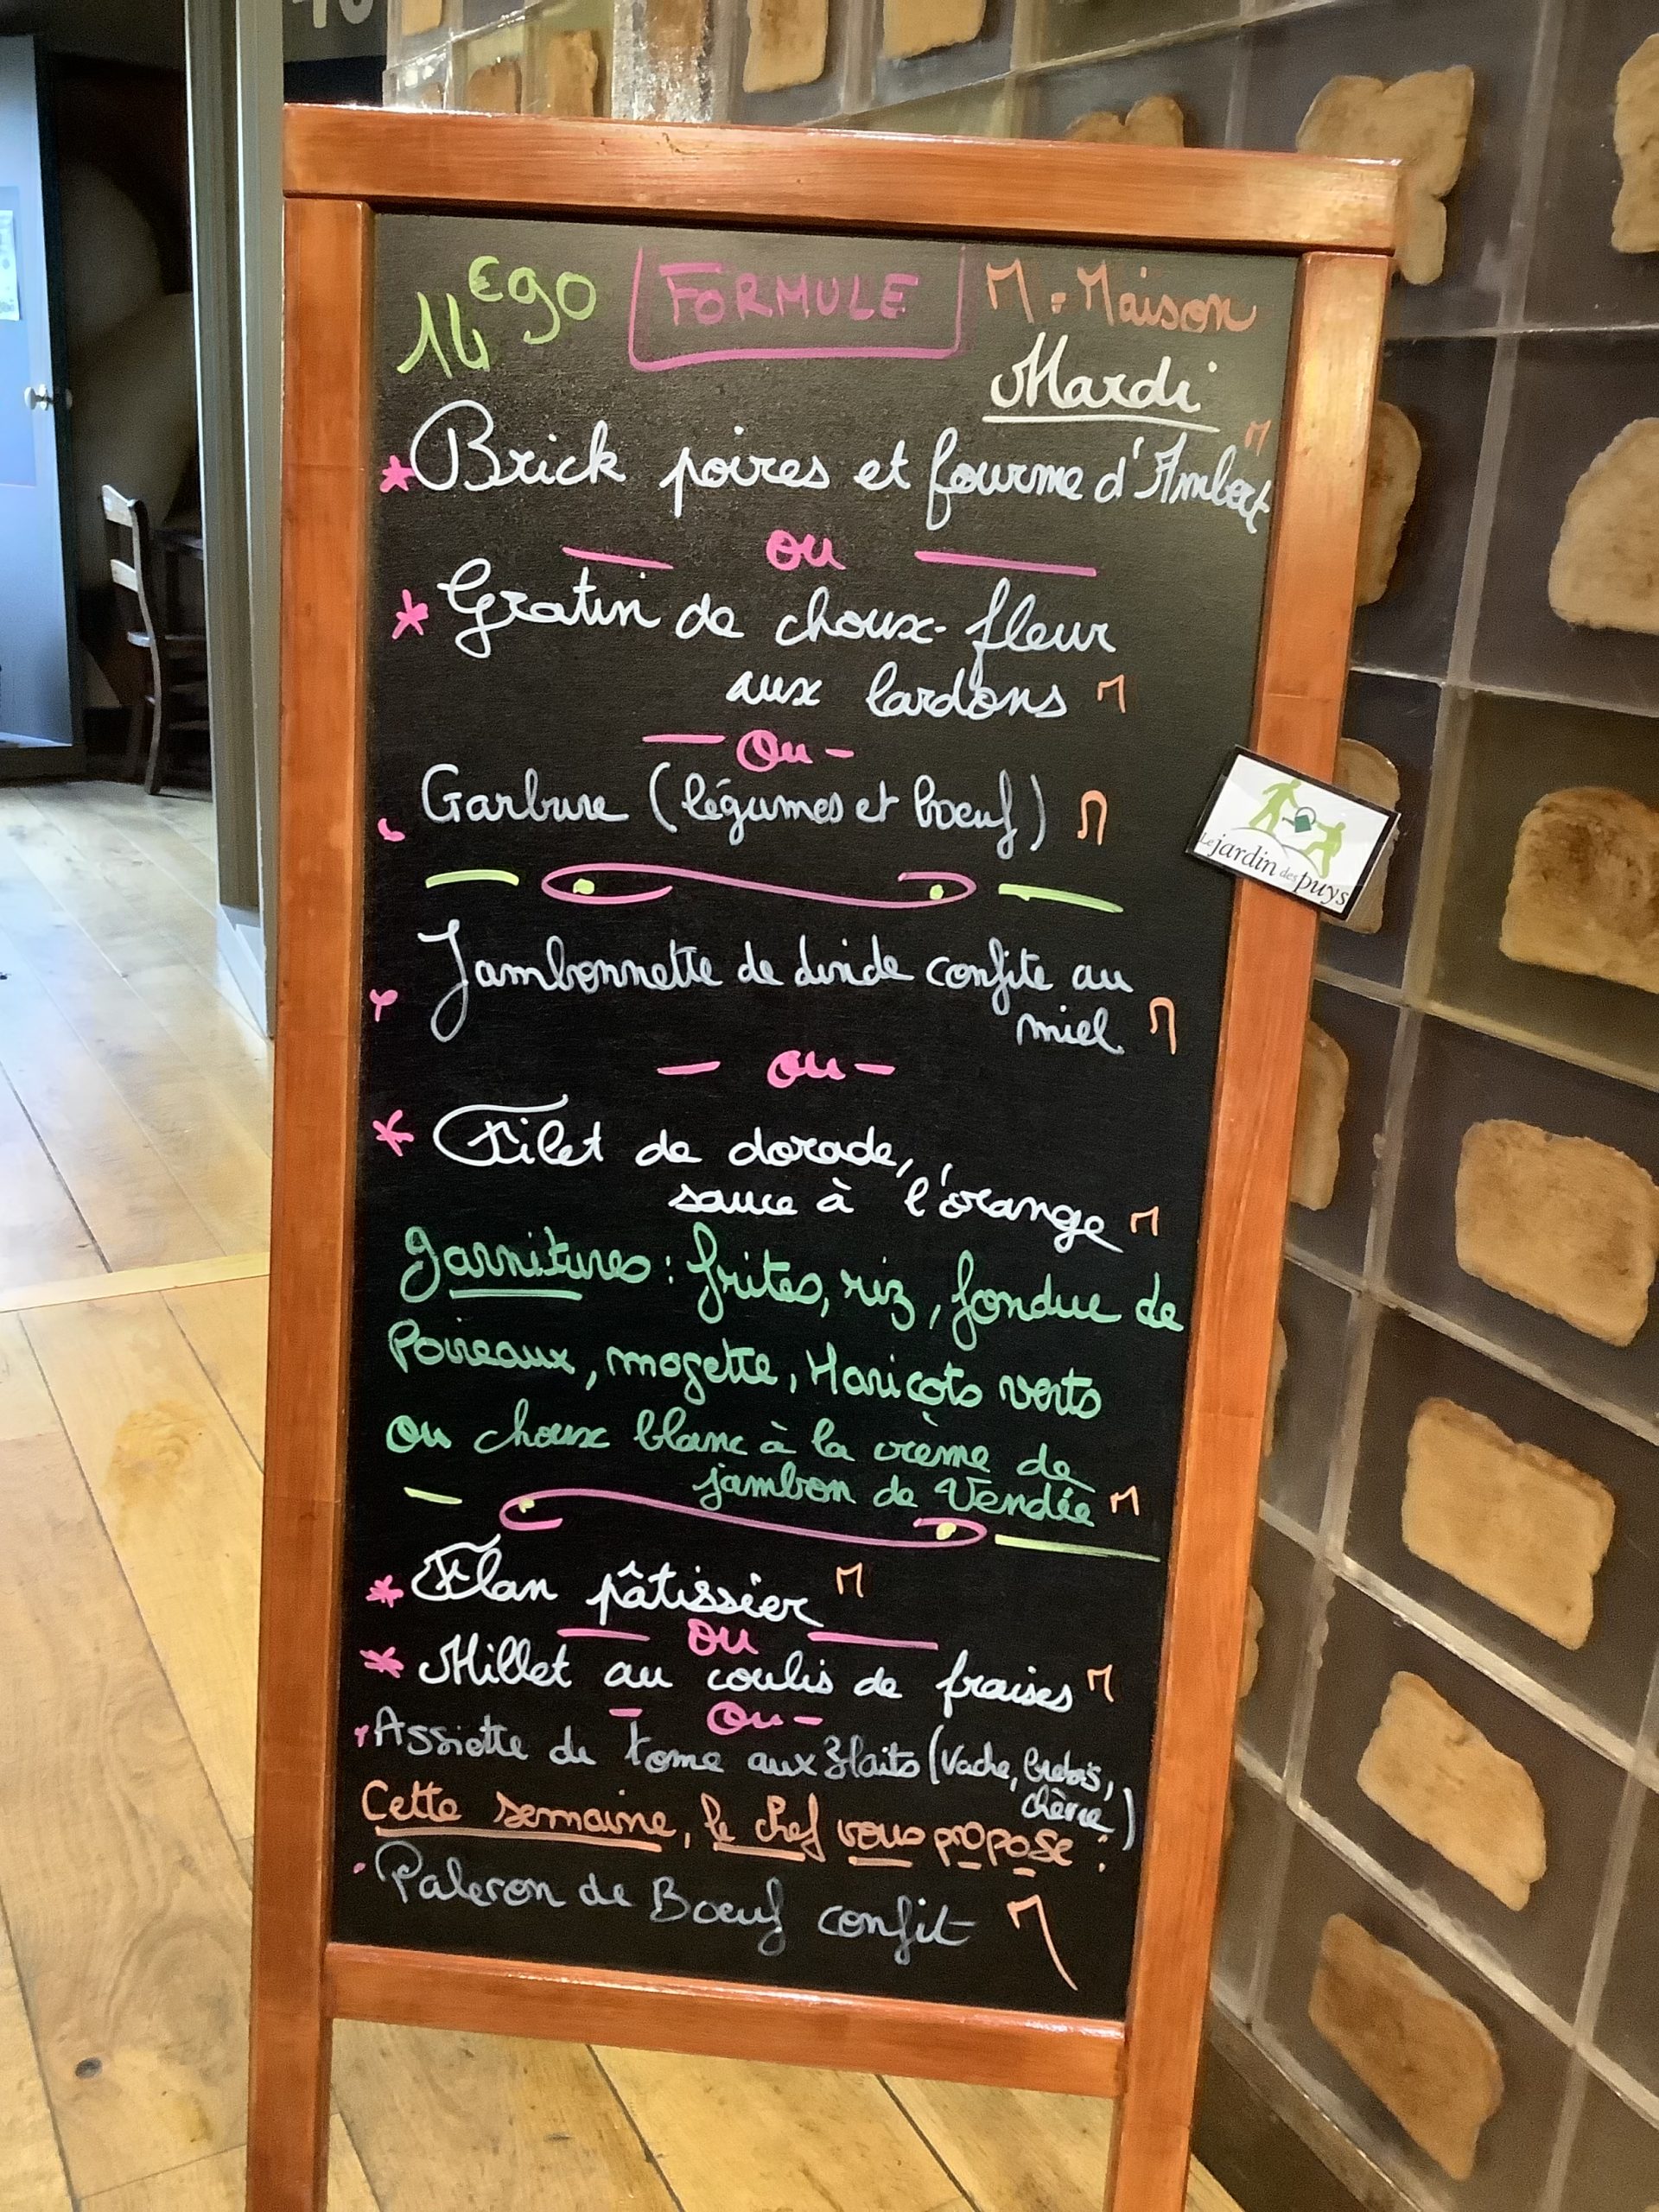 14€90 FORMULE M = Maison
Mardi
* Brick poires et fourme d'Ambert M
ou
* Gratin de choux-fleur
aux lardons M
- Ou -
Garbure (légumes et boeuf) M
Le jardin des puys
Jambonnette de dinde confite au
miel M
- ou -
* Filet de dorade,
sauce à l'orange M
Garnitures : frites, riz, fondue de
Poireaux, mogette, Haricots verts
ou choux blanc à la crème de
jambon de Vendée M
* Flan pâtissier M
ou
* Millet au coulis de fraises M
- Ou -
Assiette de tome aux 3 laits (Vache, brebis,
chèvre)
Cette semaine, le chef vous propose :
Paleron de Boeuf confit M